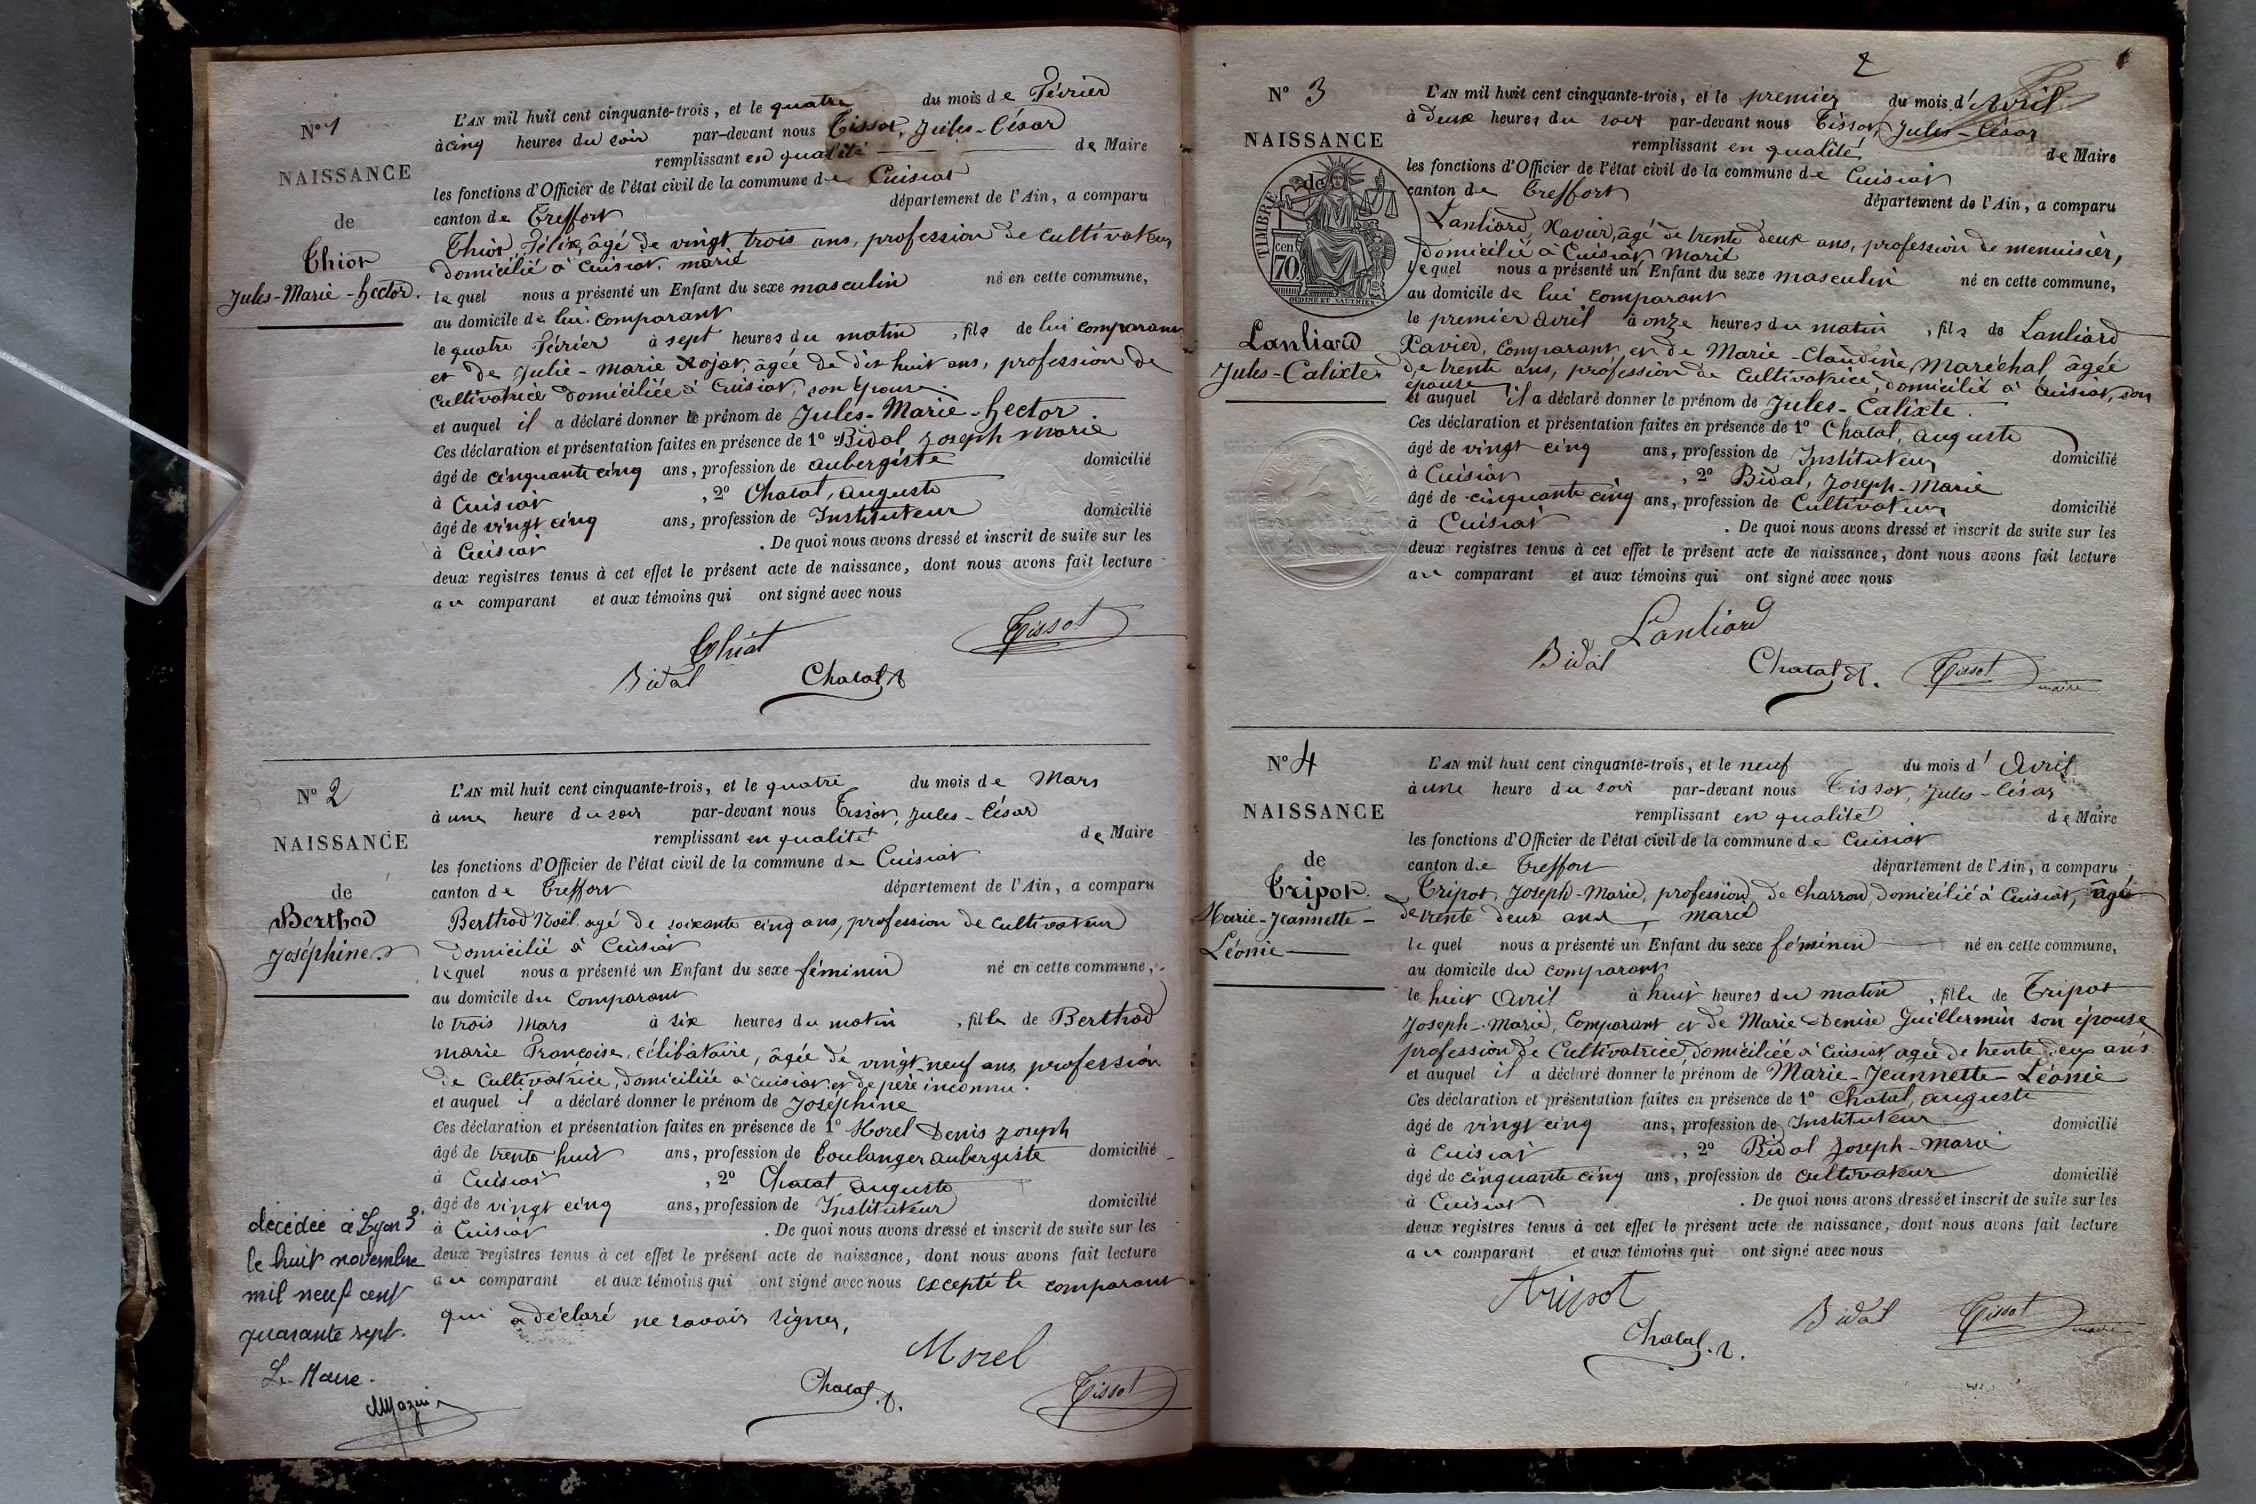 N° 1
NAISSANCE
de
Thiot
Jules-Marie-hector.
L'AN mil huit cent cinquante-trois, et le quatre du mois de Février
à cinq heures du soir par-devant nous Tissot, Jules-César
remplissant en qualité de Maire
les fonctions d'Officier de l'état civil de la commune de Cuisiat
canton de Treffort département de l'Ain, a comparu
Thiot, Félix, âgé de vingt trois ans, profession de cultivateur
domicilié à Cuisiat. marié
le quel nous a présenté un Enfant du sexe masculin né en cette commune,
au domicile de lui comparant
le quatre Février à sept heures du matin, fils de lui comparant
et de Julie-marie Rojat, âgée de dix huit ans, profession de
cultivatrice domiciliée à Cuisiat, son épouse.
et auquel il a déclaré donner le prénom de Jules-Marie-hector.
Ces déclaration et présentation faites en présence de 1° Bidal Joseph Marie
âgé de cinquante cinq ans, profession de aubergiste domicilié
à Cuisiat, 2° Chatal, auguste
âgé de vingt cinq ans, profession de Instituteur domicilié
à Cuisiat. De quoi nous avons dressé et inscrit de suite sur les
deux registres tenus à cet effet le présent acte de naissance, dont nous avons fait lecture
au comparant et aux témoins qui ont signé avec nous
Thiot Tissot
Bidal Chatal A
N° 2
NAISSANCE
de
Berthod
Joséphine
L'AN mil huit cent cinquante-trois, et le quatre du mois de Mars
à une heure du soir par-devant nous Tissot, Jules-César
remplissant en qualité de Maire
les fonctions d'Officier de l'état civil de la commune de Cuisiat
canton de Treffort département de l'Ain, a comparu
Berthod Noël agé de soixante cinq ans, profession de cultivateur
domicilié à Cuisiat
le quel nous a présenté un Enfant du sexe féminin né en cette commune,
au domicile du comparant
le trois Mars à six heures du matin, fille de Berthod
marie Françoise, célibataire, âgée de vingt-neuf ans profession
de Cultivatrice, domiciliée à Cuisiat et de père inconnu.
et auquel il a déclaré donner le prénom de Joséphine
Ces déclaration et présentation faites en présence de 1° Morel Denis Joseph
âgé de trente huit ans, profession de boulanger aubergiste domicilié
à Cuisiat, 2° Chatal auguste
âgé de vingt cinq ans, profession de Instituteur domicilié
à Cuisiat. De quoi nous avons dressé et inscrit de suite sur les
deux registres tenus à cet effet le présent acte de naissance, dont nous avons fait lecture
au comparant et aux témoins qui ont signé avec nous excepté le comparant
qui a déclaré ne savoir signer,
Morel
Chatal. A. Tissot
décédée à Lyon 3e
le huit novembre
mil neuf cent
quarante sept.
Le Maire.
2
N° 3
NAISSANCE
de
TIMBRE
70 cen
OUDINÉ ET VAUTHIER
Lanliard
Jules-Calixte
L'AN mil huit cent cinquante-trois, et le premier du mois d'Avril
à deux heures du soir par-devant nous Tissot, Jules-César
remplissant en qualité de Maire
les fonctions d'Officier de l'état civil de la commune de Cuisiat
canton de Treffort département de l'Ain, a comparu
Lanliard, Xavier, âgé de trente deux ans, profession de menuisier,
domicilié à Cuisiat, Marié
le quel nous a présenté un Enfant du sexe masculin né en cette commune,
au domicile de lui comparant
le premier avril à onze heures du matin, fils de Lanliard
Xavier, comparant et de Marie-Claudine Maréchal âgée
de trente ans, profession de Cultivatrice, domicilié à Cuisiat, son
épouse
et auquel il a déclaré donner le prénom de Jules-Calixte.
Ces déclaration et présentation faites en présence de 1° Chatal, auguste
âgé de vingt cinq ans, profession de Instituteur domicilié
à Cuisiat, 2° Bidal, Joseph-Marie
âgé de cinquante cinq ans, profession de Cultivateur domicilié
à Cuisiat. De quoi nous avons dressé et inscrit de suite sur les
deux registres tenus à cet effet le présent acte de naissance, dont nous avons fait lecture
au comparant et aux témoins qui ont signé avec nous
Lanliard
Bidal Chatal A. Tissot maire
N° 4
NAISSANCE
de
Tripot.
Marie-Jeannette-
Léonie
L'AN mil huit cent cinquante-trois, et le neuf du mois d'Avril
à une heure du soir par-devant nous Tissot, Jules-César
remplissant en qualité de Maire
les fonctions d'Officier de l'état civil de la commune de Cuisiat
canton de Treffort département de l'Ain, a comparu
Tripot, Joseph-Marie, profession de charron domicilié à Cuisiat, âgé
de trente deux ans, marié
le quel nous a présenté un Enfant du sexe féminin né en cette commune,
au domicile du comparant
le huit Avril à huit heures du matin, fille de Tripot
Joseph-Marie, comparant et de Marie Denise Guillermin son épouse
profession de Cultivatrice, domiciliée à Cuisiat agée de trente deux ans
et auquel il a déclaré donner le prénom de Marie-Jeannette-Léonie
Ces déclaration et présentation faites en présence de 1° Chatal, auguste
âgé de vingt cinq ans, profession de Instituteur domicilié
à Cuisiat, 2° Bidal Joseph-Marie
âgé de cinquante cinq ans, profession de cultivateur domicilié
à Cuisiat. De quoi nous avons dressé et inscrit de suite sur les
deux registres tenus à cet effet le présent acte de naissance, dont nous avons fait lecture
au comparant et aux témoins qui ont signé avec nous
Tripot
Chatal. A. Bidal Tissot maire